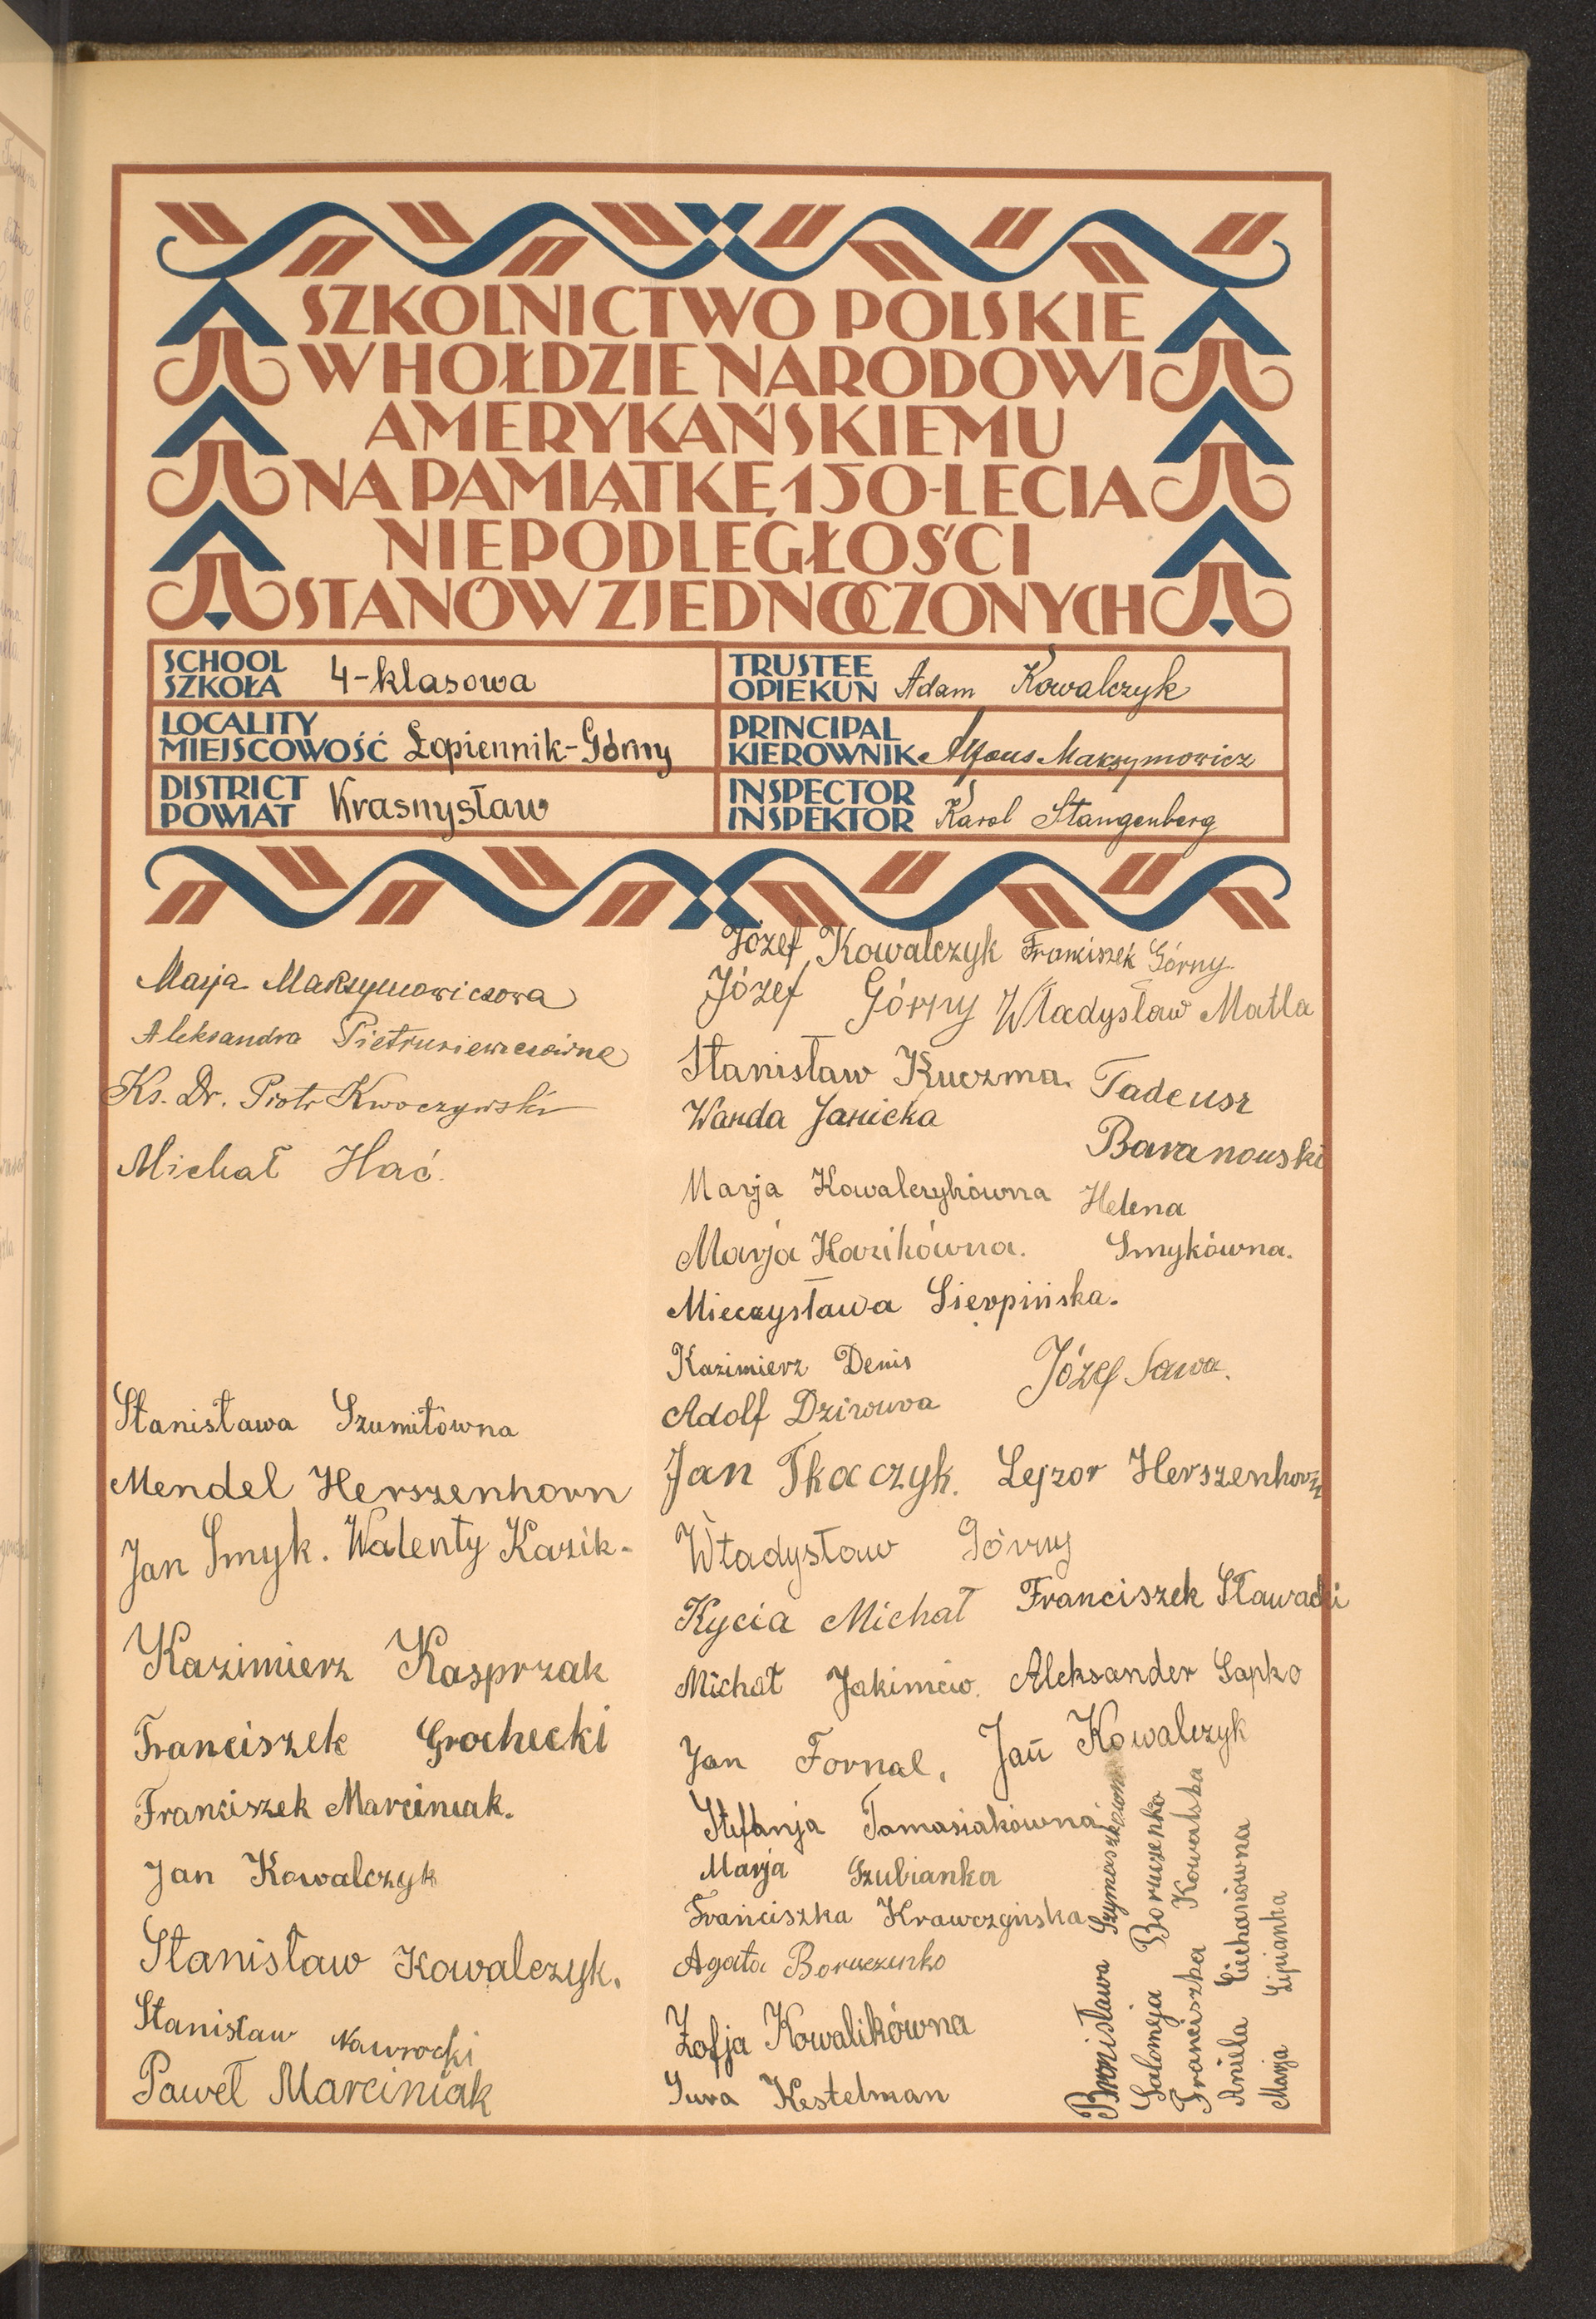 SZKOLNICTWO POLSKIE
W HOŁDZIE NARODOWI
AMERYKAŃSKIEMU
NA PAMIĄTKĘ 150-LECIA
NIEPODLEGŁOŚCI
STANÓW ZJEDNOCZONYCH
SCHOOL
SZKOŁA 4-klasowa
LOCALITY
MIEJSCOWOŚĆ Łopiennik-Górny
DISTRICT
POWIAT Krasnystaw
TRUSTEE
OPIEKUN Adam Kowalczyk
PRINCIPAL
KIEROWNIK Alfons Maksymowicz
INSPECTOR
INSPEKTOR Karol Stangenberg
Marja Maksymowiczowa
Aleksandra Pietrusiewiczówna
Ks. Dr. Piotr Kwoczyński
Michał Hać.
Stanisława Szumiłówna
Mendel Herszenhorn
Jan Smyk. Walenty Kazik-
Kazimierz Kasprzak
Franciszek Grochecki
Franciszek Marciniak.
Jan Kowalczyk
Stanisław Kowalczyk.
Stanisław Nawrocki
Paweł Marciniak
Józef Kowalczyk Franciszek Górny
Józef Górny Władysław Matla
Stanisław Kuczma. Tadeusz
Wanda Janicka Baranowski
Marja Kowalczykówna Helena
Marja Kazikówna. Smykówna.
Mieczysława Sierpińska.
Kazimierz Denis Józef Sawa.
Adolf
Jan Tkaczyk. Lejzor Herszenhorn
Władysław Górny
Kycia Michał Franciszek Sławacki
Michał Jakimciw. Aleksander Sapko
Jan Fornal, Jan Kowalczyk
Stefanja Tomasiakówna
Marja Szubianka
Franciszka Krawczyńska
Agata Boruczenko
Zofja Kowalikówna
Sura Kestelman
Bronisława
Salomeja Boruczenko
Franciszka Kowalska
Aniela Ciechanówna
Marja Lipianka